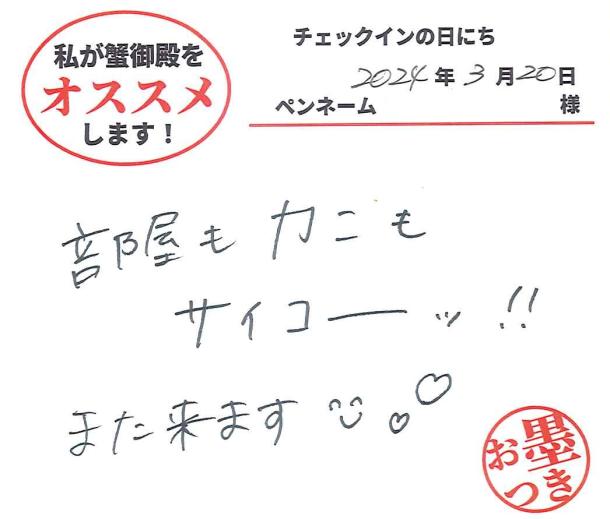 私が蟹御殿を
オススメ
します！
チェックインの日にち
2024年3月20日
ペンネーム 様
部屋もカニも
サイコーッ!!
また来ます
お墨つき